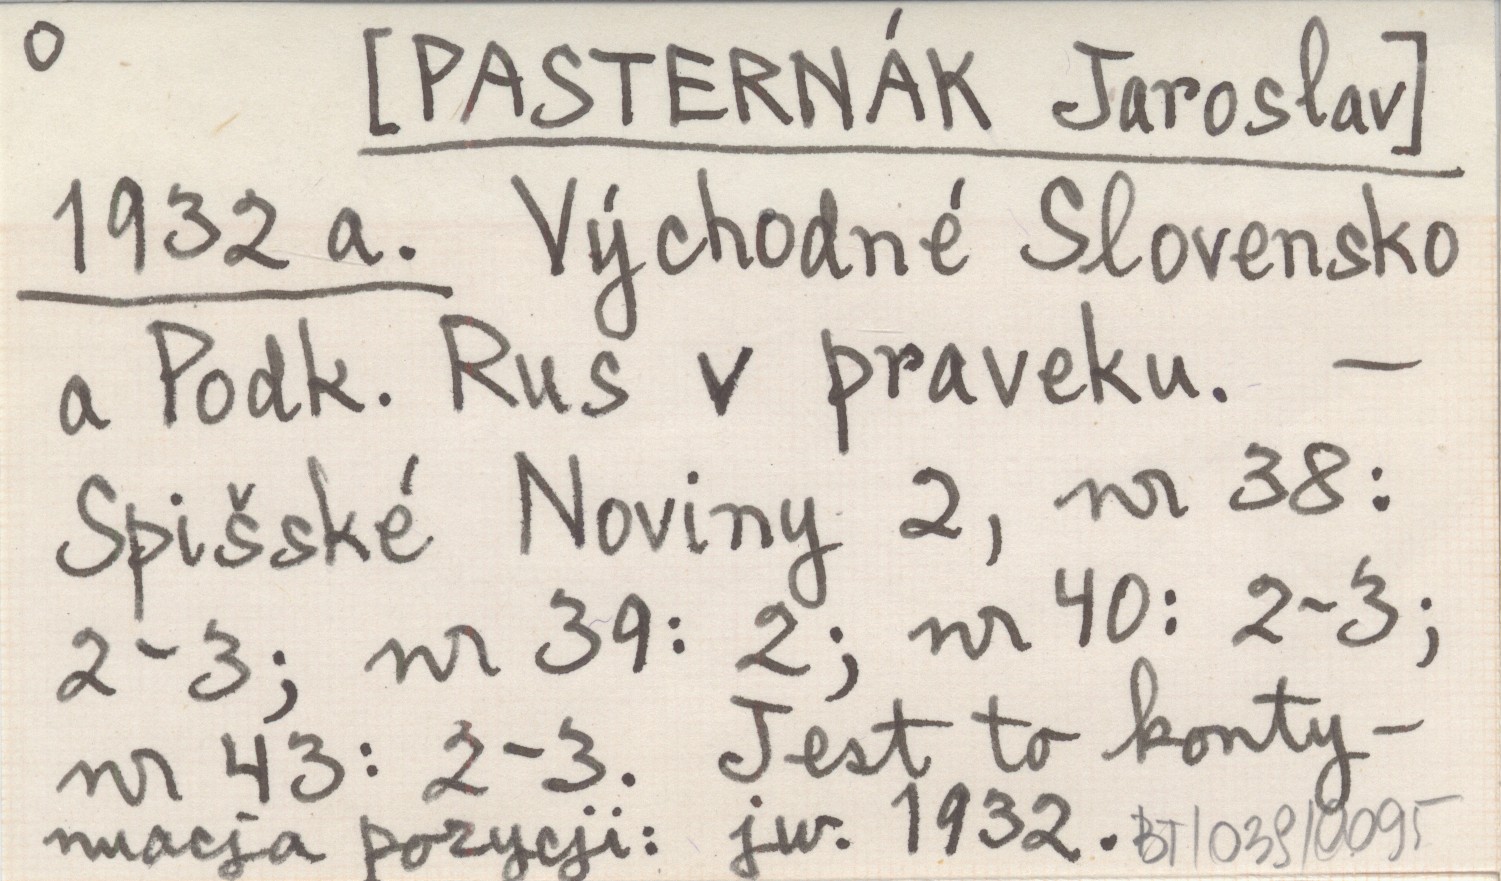 o [PASTERNÁK Jaroslav]
1932 a. Východné Slovensko
a Podk. Rus v praveku. –
Spišské Noviny 2, nr 38:
2-3; nr 39: 2; nr 40: 2-3;
nr 43: 2-3. Jest to konty-
nuacja pozycji: jw. 1932. BT/039/0095